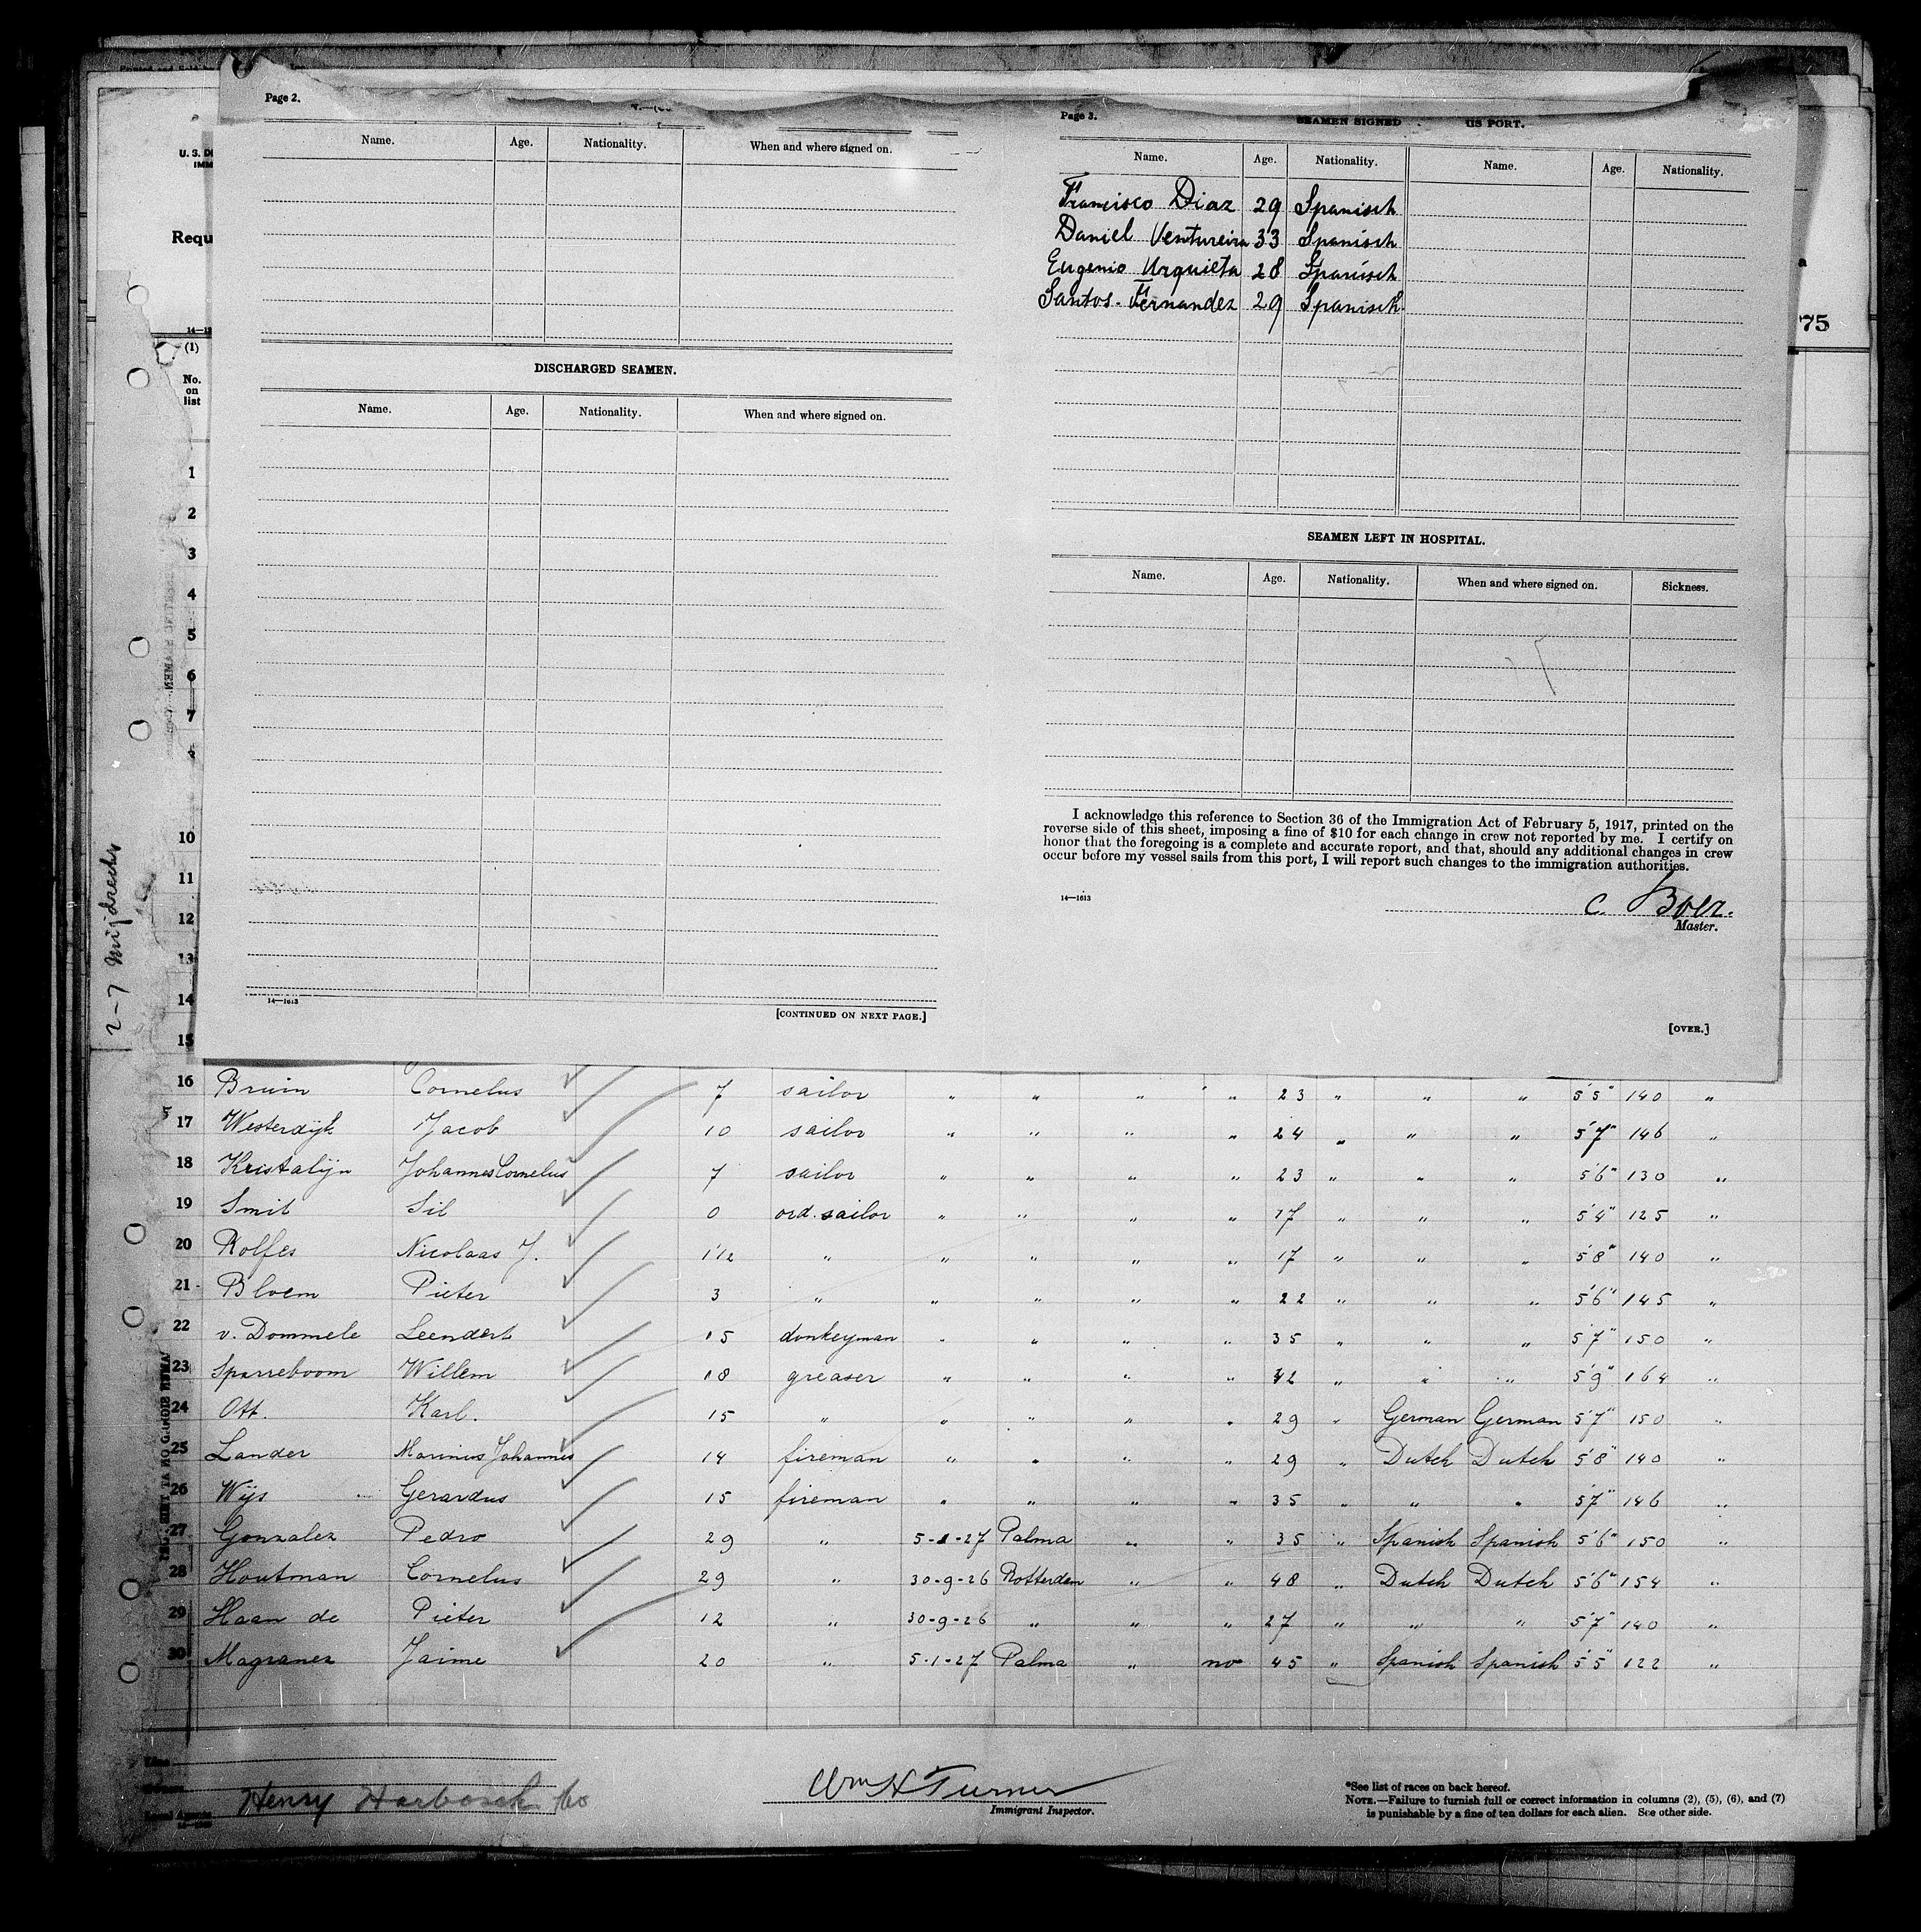 Page 2.
Name. Age. Nationality. When and where signed on.
DISCHARGED SEAMEN.
Name. Age. Nationality. When and where signed on.
14—1613
[CONTINUED ON NEXT PAGE.]
Page 3.
SEAMEN SIGNED US PORT.
Name. Age. Nationality. Name. Age. Nationality.
Francisco Diaz 29 Spanisch
Daniel Ventureira 33 Spanisch
Eugenio Urquieta 28 Spanisch
Santos Fernandez 29 Spanisch
SEAMEN LEFT IN HOSPITAL.
Name. Age. Nationality. When and where signed on. Sickness.
I acknowledge this reference to Section 36 of the Immigration Act of February 5, 1917, printed on the
reverse side of this sheet, imposing a fine of $10 for each change in crew not reported by me. I certify on
honor that the foregoing is a complete and accurate report, and that, should any additional changes in crew
occur before my vessel sails from this port, I will report such changes to the immigration authorities.
14—1613
C. Boer.
Master.
[OVER.]
U. S. D
IMM
Requ
75
(1)
No.
on
list
1
2
3
4
5
6
7
10
11
12
13
14
15
2-7 Mijdrecht
16 Bruin Cornelus 7 sailor " " " " 23 " " " 5'5" 140 "
17 Westerdijk Jacob 10 sailor " " " " 24 " " " 5'7" 146 "
18 Kristalijn Johannes Cornelius 7 sailor " " " " 23 " " " 5'6" 130 "
19 Smit Sil 0 ord. sailor " " " " 17 " " " 5'4" 125 "
20 Rolfes Nicolaas J. 1'12 " " " " " 17 " " " 5'8" 140 "
21 Bloem Pieter 3 " " " " " 22 " " " 5'6" 145 "
22 v. Dommele Leendert 15 donkeyman " " " " 35 " " " 5'7" 150 "
23 Sparreboom Willem 18 greaser " " " " 42 " " " 5'9" 164 "
24 Ott. Karl. 15 " " " " " 29 " German German 5'7" 150 "
25 Lander Marinus Johannes 14 fireman " " " " 29 " Dutch Dutch 5'8" 140 "
26 Wijs Gerardus 15 fireman " " " " 35 " " " 5'7" 146 "
27 Gonzalez Pedro 29 " 5-1-27 Palma " " 35 " Spanish Spanish 5'6" 150 "
28 Houtman Cornelus 29 " 30-9-26 Rotterdam " " 48 " Dutch Dutch 5'6" 154 "
29 Haan de Pieter 12 " 30-9-26 " " " 27 " " " 5'7" 140 "
30 Magraner Jaime 20 " 5-1-27 Palma " no 45 " Spanish Spanish 5'5" 122 "
Line
Local Agents Henry
Wm H Turner
Immigrant Inspector.
*See list of races on back hereof.
NOTE.—Failure to furnish full or correct information in columns (2), (5), (6), and (7)
is punishable by a fine of ten dollars for each alien. See other side.